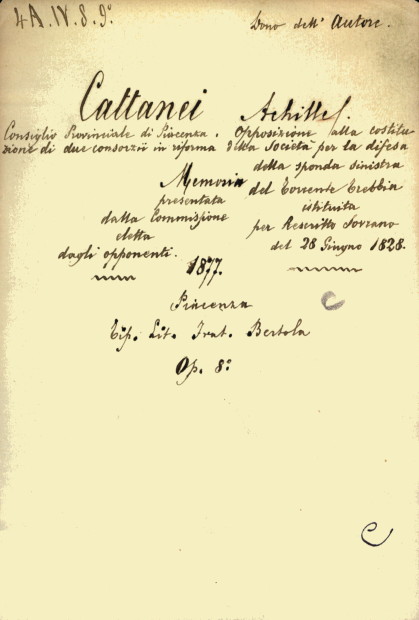 4A.IV.8.9º
Dono dell' Autore.
Cattanei Achille.
Consiglio Provinciale di Piacenza. Opposizione alla costitu-
zione di due consorzii in riforma della Società per la difesa
della sponda sinistra
Memoria del Torrente Trebbia
presentata istituita
dalla Commissione per Rescritto Sovrano
eletta del 28 Giugno 1828.
dagli opponenti.
1877.
Piacenza
Tip. Lit. Frat. Bertola
Op. 8º
C
C